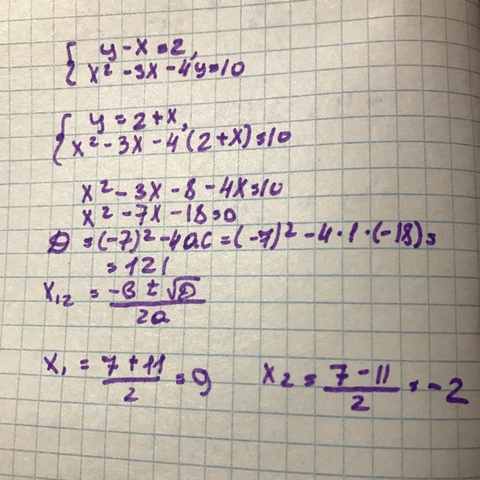 { y - x = 2,
{ x² - 3x - 4y = 10
{ y = 2 + x,
{ x² - 3x - 4(2 + x) = 10
x² - 3x - 8 - 4x = 10
x² - 7x - 18 = 0
D = (-7)² - 4ac = (-7)² - 4 · 1 · (-18) =
= 121
x₁,₂ = (-в ± √D) / 2a
x₁ = (7 + 11) / 2 = 9 x₂ = (7 - 11) / 2 = -2